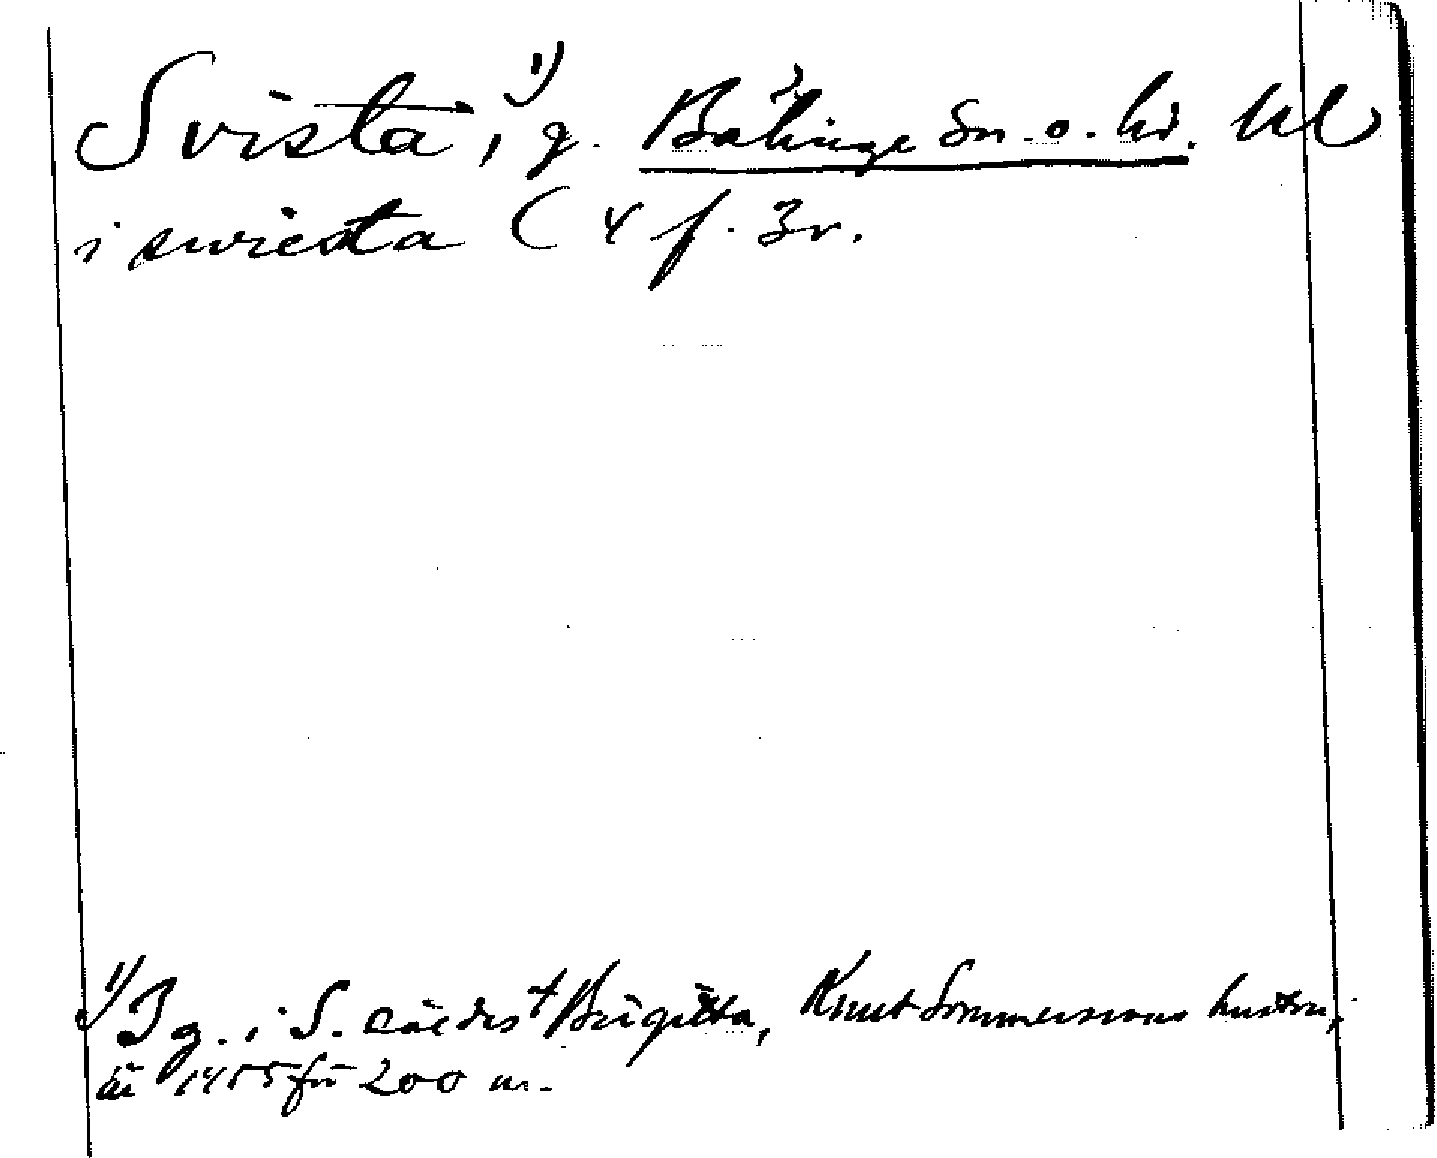 Svista, 1) g. Bälinge sn. o. hd. Upl
i swiesta C 4 f. 3v.
1) 3 g. i S. säldes t Birgitta, Knut Sommersvens hustru,
år 1455 för 200 m.